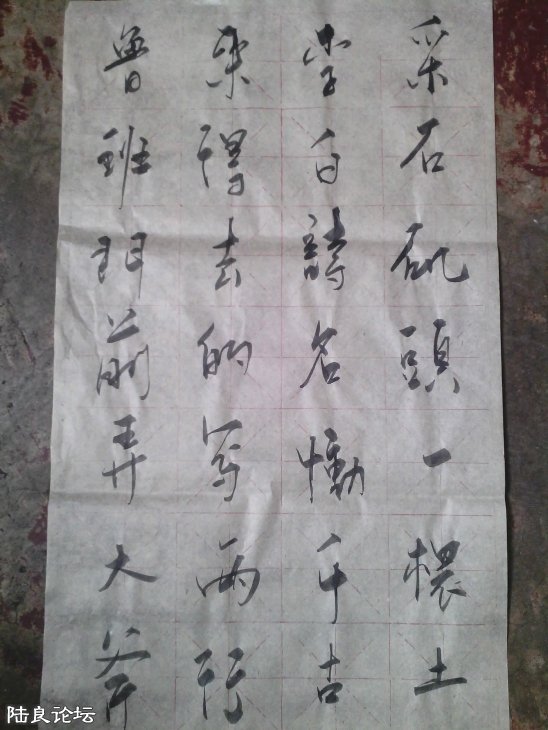 采石矶頭一椳土
李白詩名慟千古
来得去的写两行
鲁班门前弄大斧
陆良论坛